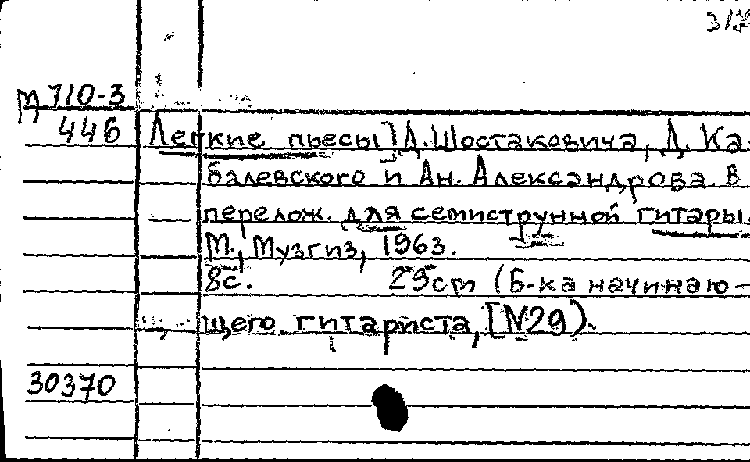 М 710-3
446
Легкие пьесы] Д. Шостаковича, Д. Ка-
балевского и Ан. Александрова. В
перелож. для семиструнной гитары.
М., Музгиз, 1963.
8с. 29cm (Б-ка начинаю-
щего гитариста, [№29).
30370